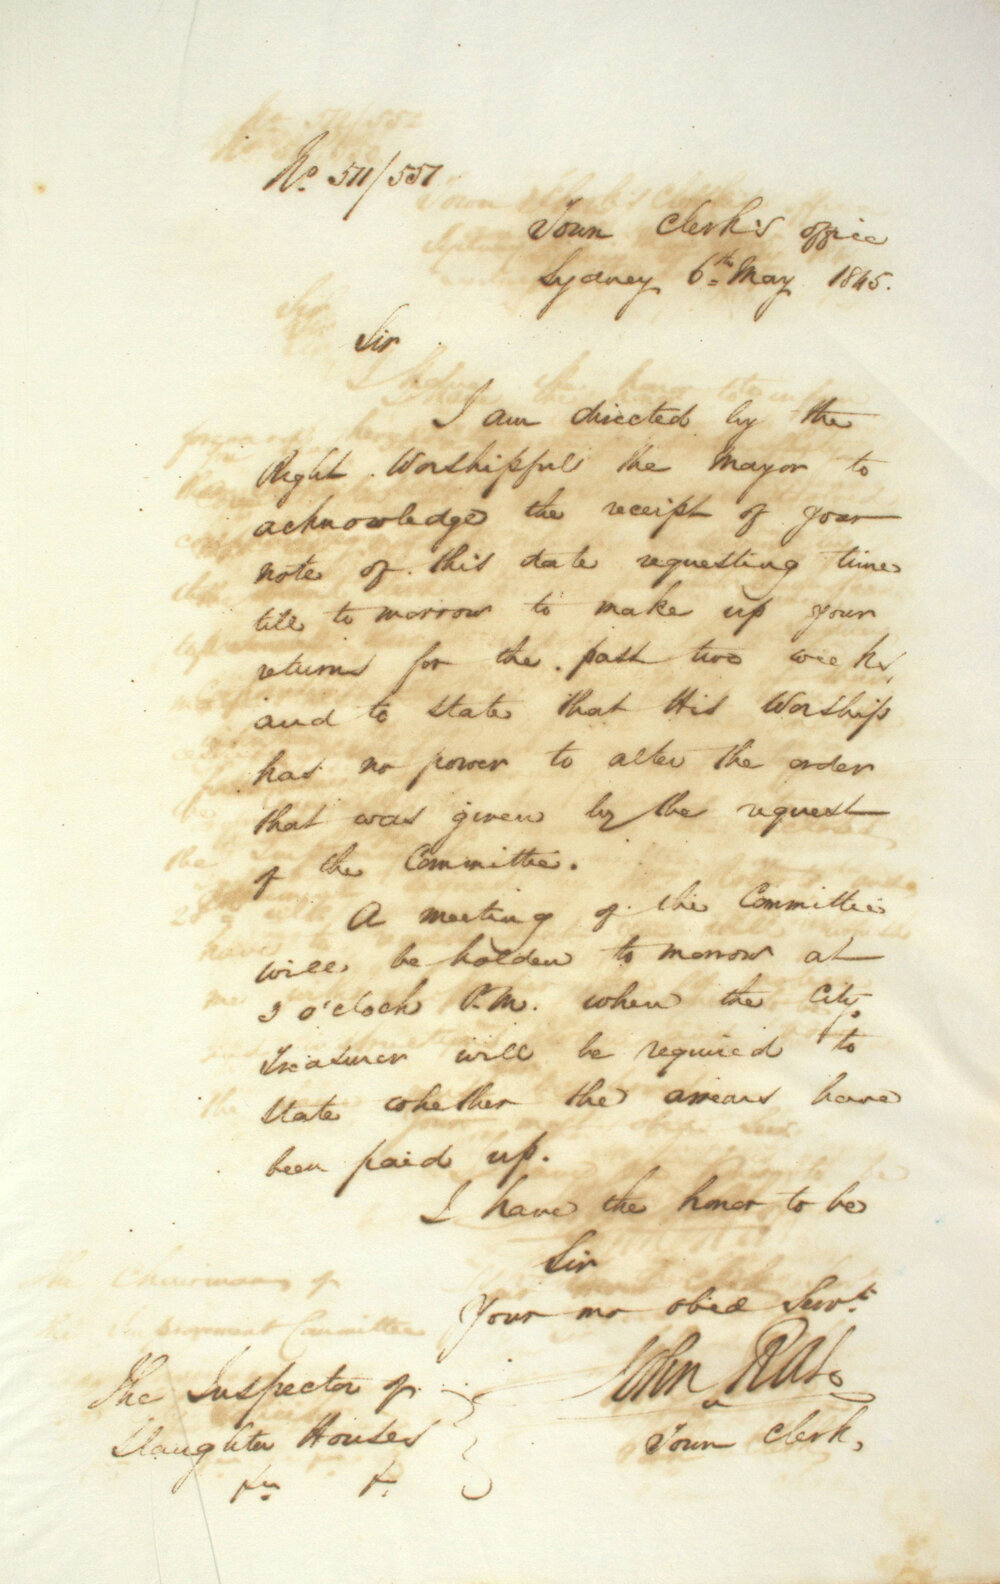 No. 511/551
Town Clerk's office
Sydney 6th May 1845.
Sir
I am directed by the
Right Worshipful the Mayor to
acknowledge the receipt of your
note of this date requesting time
till to morrow to make up your
returns for the past two weeks,
and to state that His Worship
has no power to alter the order
that was given by the request
of the Committee.
A meeting of the Committee
will be holden to morrow at
3 o'clock P.M. when the City
Treasurer will be required to
state whether the arrears have
been paid up.
I have the honor to be
Sir
Your mo obed Servt
John Rae
Town Clerk,
The Inspector of
Slaughter Houses